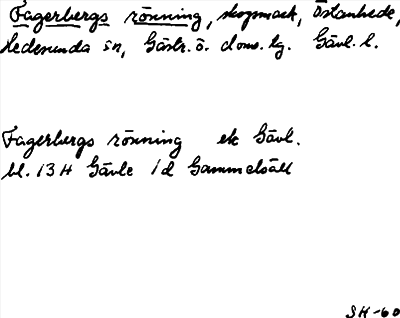 Fagerbergs rönning, skogsmark, Östanhede,
Hedesunda sn, Gästr. ö. doms. lg. Gävl. l.
Fagerbergs rönning ek Gävl.
bl. 13 H Gävle 1d Gammelsäll
SH-60